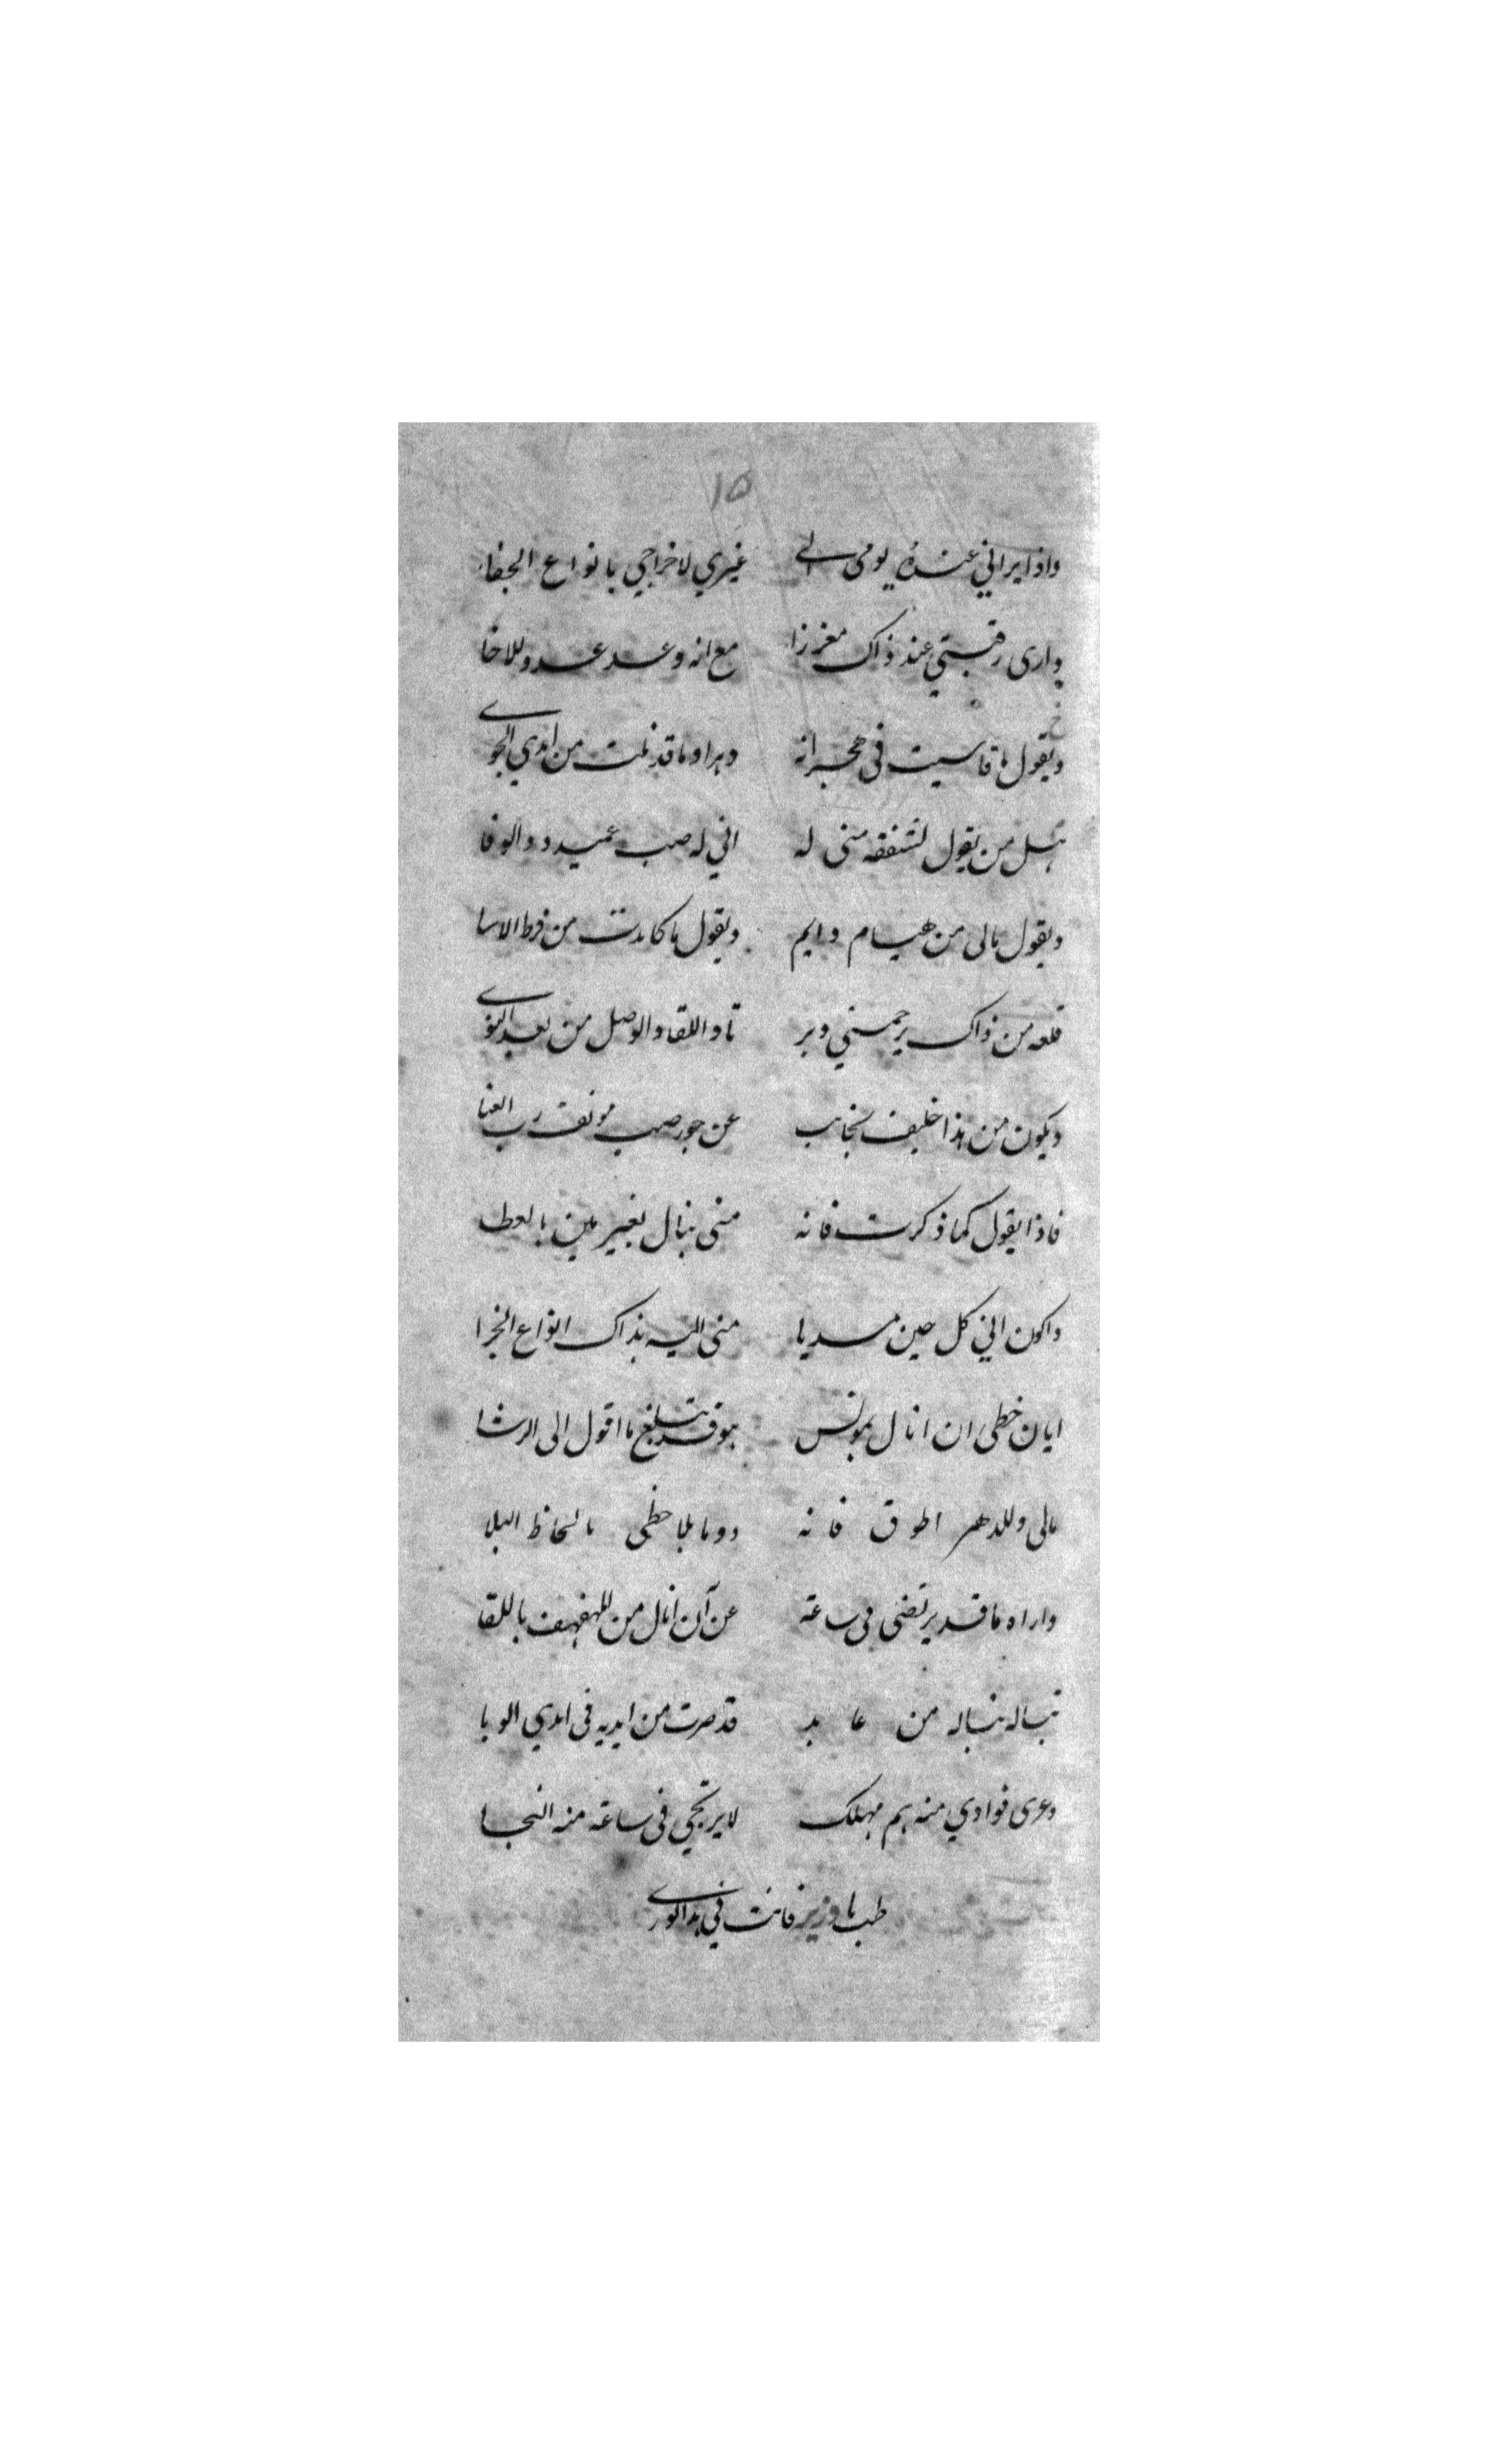 ١٥
واذا يراني عنده يومى الى غيري لاخراجي بانواع الجفاء
وارى رقبتي عند ذاك مغرزا مع انه وعد عدو للاخا
ويقول ما قاسيت فى هجرانه دهرا وما قد نلت من ايدي الجوى
هل من يقول لشفقه منى له اني له صب عميد ذو الوفا
ويقول مالى من هيام دايم ويقول ما كابدت من فرط الاسا
فلعه من ذاك يرحمني وير تاد اللقا والوصل من بعد النوى
ويكون من هذا خليف تجانب عن جور صب مونق رب العنا
فاذا يقول كما ذكرت فانه منى ينال بغير مين بالعطا
واكون اني كل حين مسديا منى اليه بذاك انواع الجزا
ايان حظى ان انال بمونس يبلغ ما اقول الى الرشا
مالى وللدهر فانه دوما يلاحظنى بالحاظ البلا
واراه ما قد يرتضى فى ساعة عن آن انال من المهفهف باللقا
تبا له تبا له من قد صرت من ايديه فى ايدي الوبا
وعرى فوادي منه هم مهلك لا يرتجي فى ساعة منه النجا
طب يا وزير فانت في هذا الورى